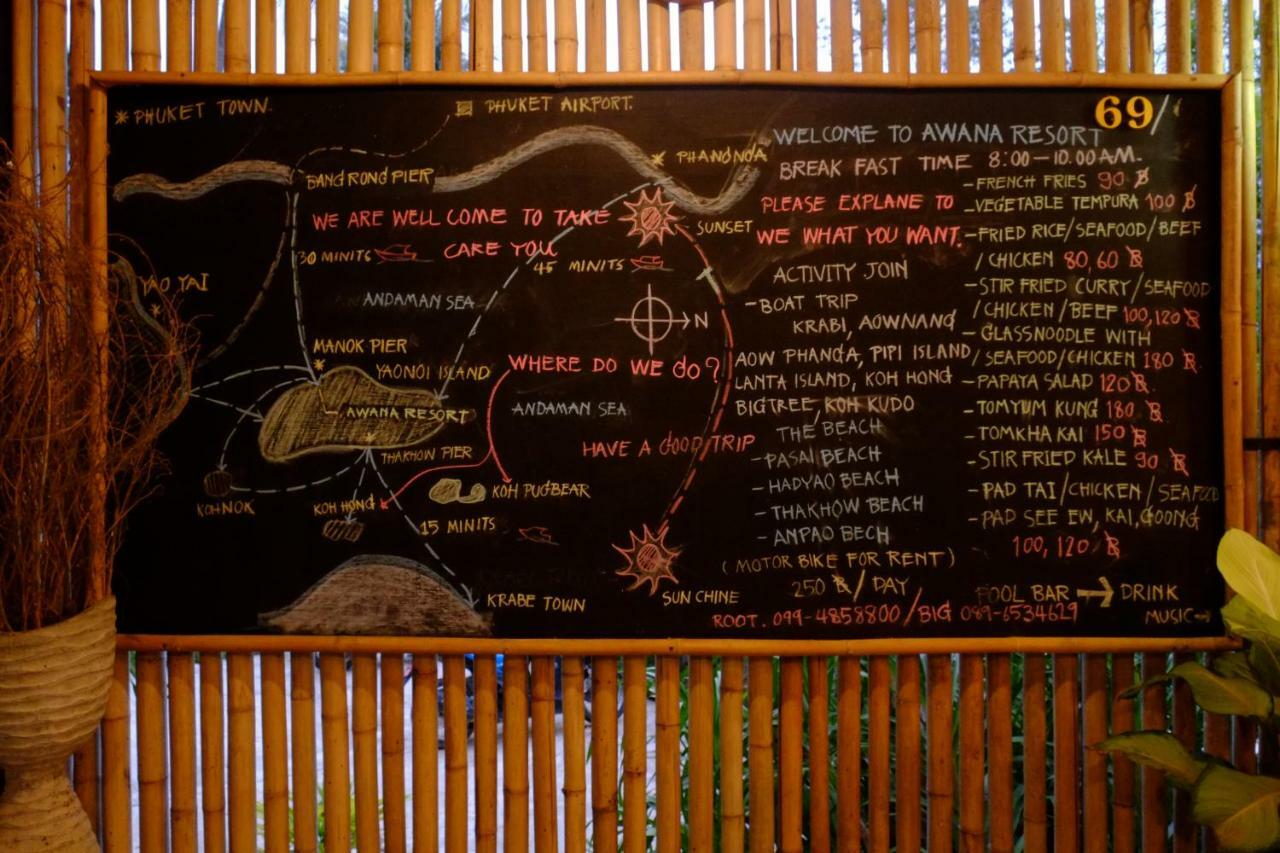 * PHUKET TOWN.
PHUKET AIRPORT.
BANGRONG PIER
PHANGNGA
WE ARE WELL COME TO TAKE
CARE YOU
SUNSET
30 MINITS
45 MINITS
YAO YAI
ANDAMAN SEA
N
MANOK PIER
YAONOI ISLAND
WHERE DO WE GO?
AWANA RESORT
ANDAMAN SEA
THAKHOW PIER
HAVE A GOOD TRIP
KOH NOK
KOH HONG
KOH PUGBEAR
15 MINITS
KRABE TOWN
SUN CHINE
69/
WELCOME TO AWANA RESORT
BREAK FAST TIME 8:00-10.00 AM.
PLEASE EXPLANE TO
WE WHAT YOU WANT.
ACTIVITY JOIN
-BOAT TRIP
KRABI, AOWNANG
AOW PHANGA, PIPI ISLAND
LANTA ISLAND, KOH HONG
BIGTREE, KOH KUDO
THE BEACH
-PASAI BEACH
-HADYAO BEACH
-THAKHOW BEACH
-ANPAO BECH
(MOTOR BIKE FOR RENT)
250 ฿/DAY
ROOT. 099-4858800/BIG 089-6534629
-FRENCH FRIES 90 ฿
-VEGETABLE TEMPURA 100 ฿
-FRIED RICE/SEAFOOD/BEEF
/CHICKEN 80,60 ฿
-STIR FRIED CURRY/SEAFOOD
/CHICKEN/BEEF 100,120 ฿
-GLASSNOODLE WITH
/SEAFOOD/CHICKEN 180 ฿
-PAPAYA SALAD 120 ฿
-TOMYUM KUNG 180 ฿
-TOMKHA KAI 150 ฿
-STIR FRIED KALE 90 ฿
-PAD TAI/CHICKEN/SEAFOOD
-PAD SEE EW, KAI, GOONG
100, 120 ฿
POOL BAR → DRINK
MUSIC→